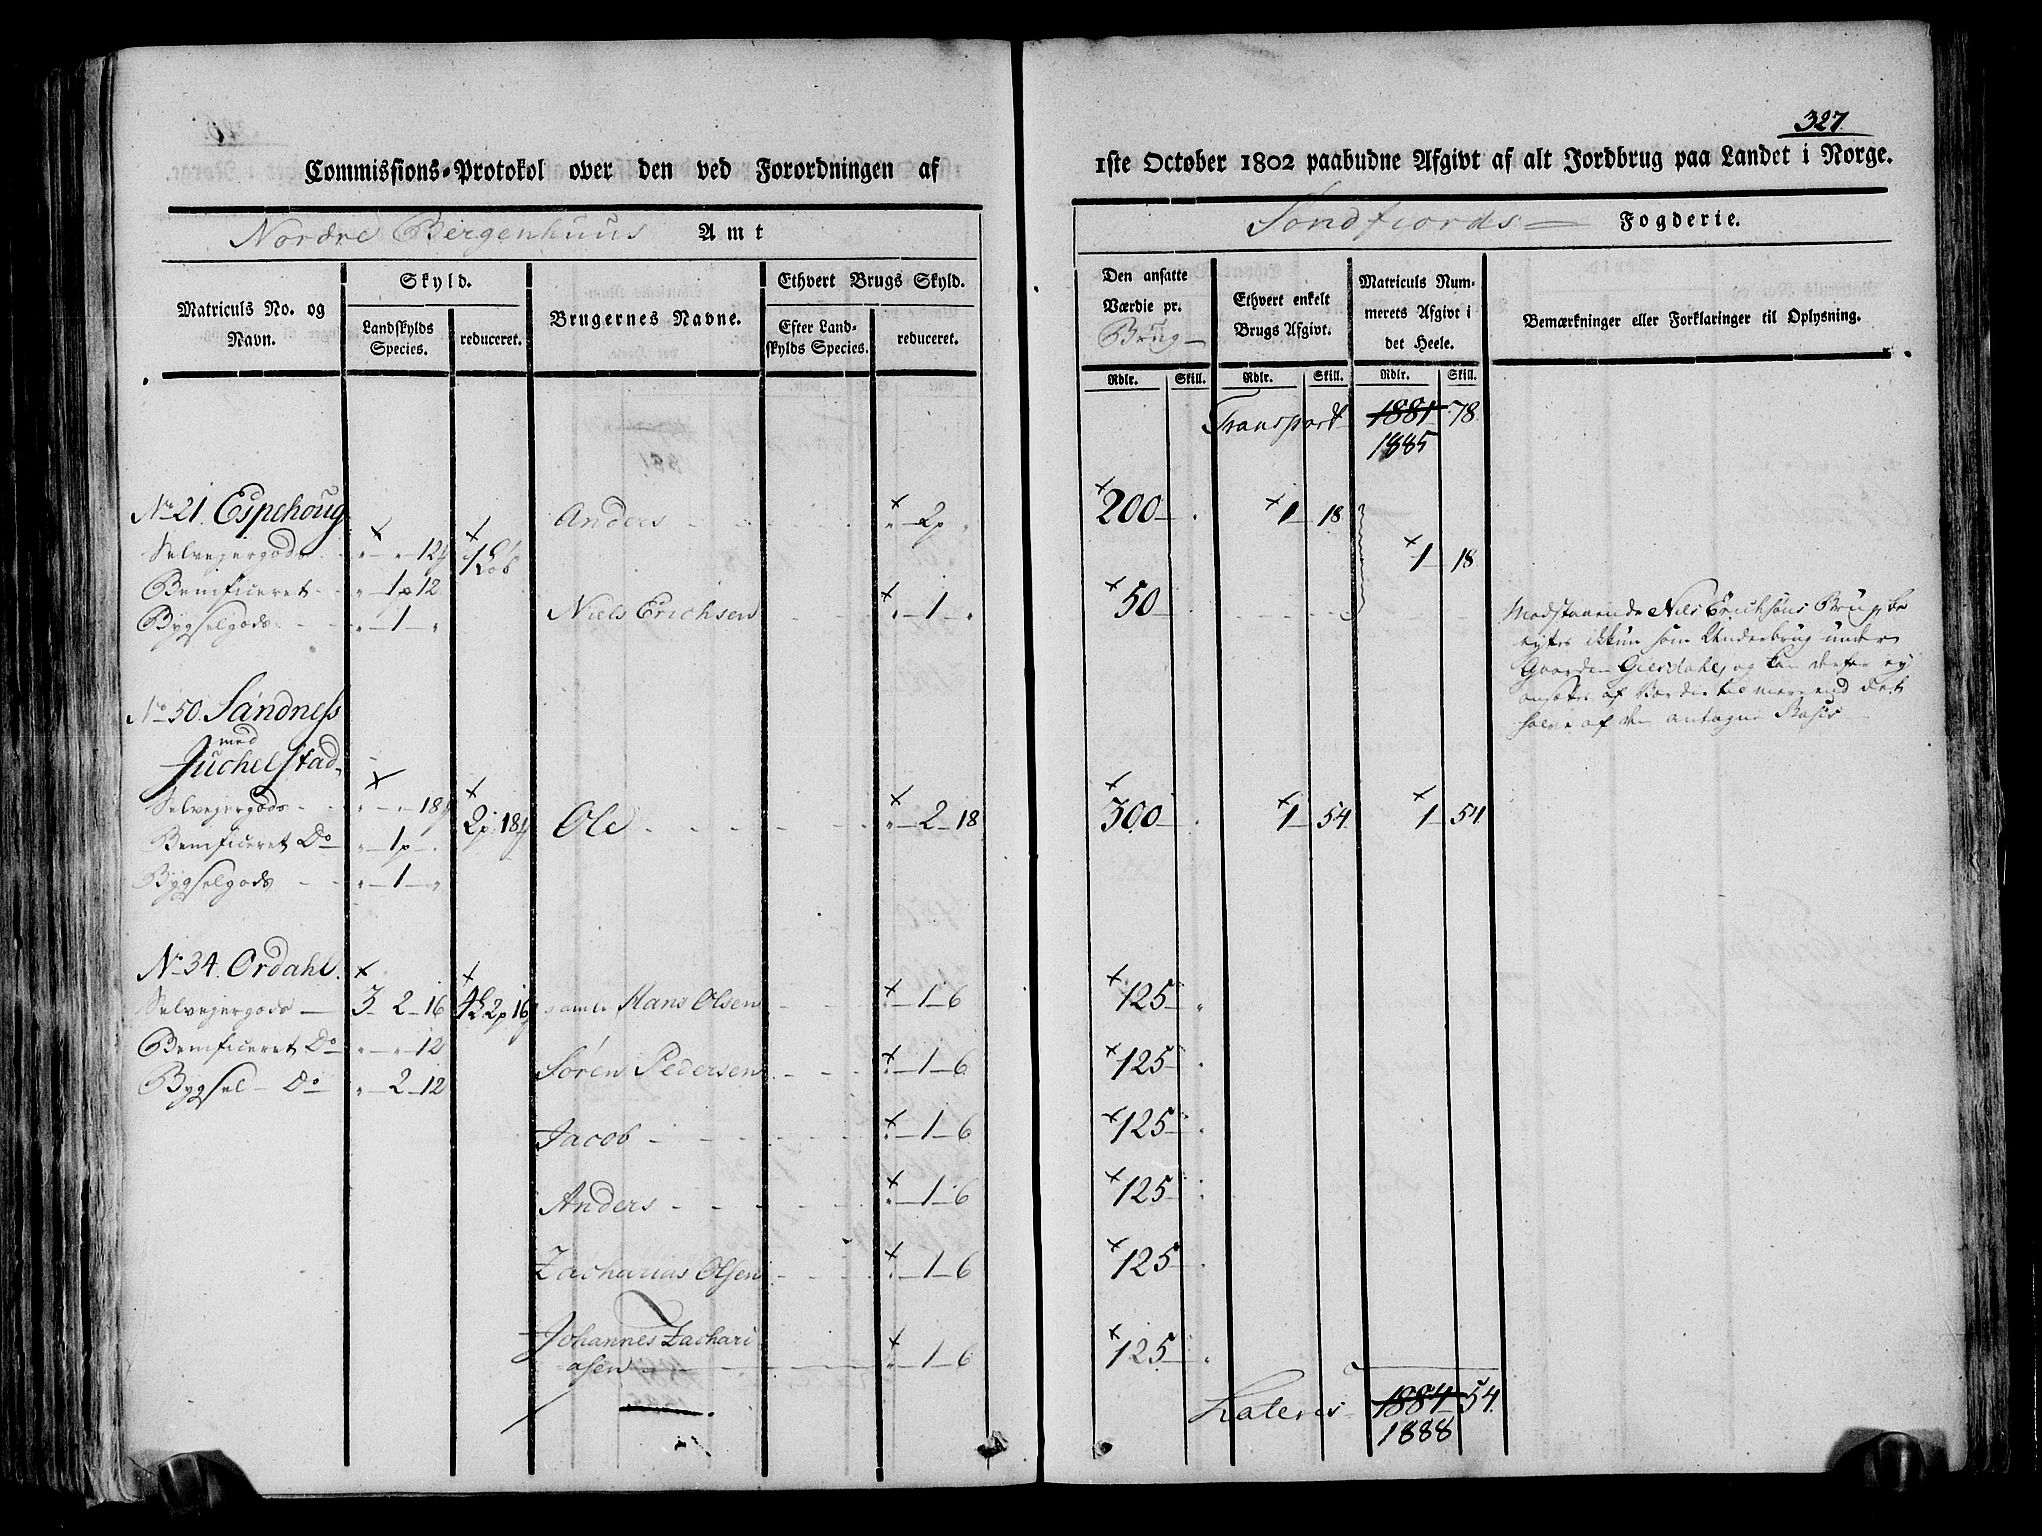 327.
Commissions-Protokol over den ved Forordningen af 1ste October 1802 paabudne Afgivt af alt Jordbrug paa Landet i Norge.
Nordre Bergenhuus Amt
Søndfiords Fogderie.
Matriculs No. og Navn.
Skyld.
Landskylds Species.
reduceret.
Brugernes Navne.
Ethvert Brugs Skyld.
Efter Landskylds Species.
reduceret.
Den ansatte Værdie pr. Brug
Ethvert enkelt Brugs Afgivt.
Matriculs Nummerets Afgivt i det Heele.
Bemærkninger eller Forklaringer til Oplysning.
Rdlr. Skill. Rdlr. Skill. Rdlr. Skill.
Transport 1881 78
1885
No 21. Espehoug
Anders 2p 200 1 18
Selvejergods 12
1 18
Benificeret 1p 12
Bygselgods 1
Niels Erichsen 1 50
Modstaaende Niels Erichsøns Brug be
nyttes ikkun som Underbrug under
Gaarden Giesdahl, og kan derfor ey
ansættes af Værdie til mere end det
halve af den antagne Basis
No 50. Sandness
med
Juchelstad
Selvejergods 18 2p 18 Ole 2 18 300 1 54 1 54
Benificeret Do 1p
Bygselgods 1
No 34. Ordahl
Selvejergods 3 2 16 4 2p 16 gamle Hans Olsen 1 6 125
Benificeret Do 12
Søren Pedersen 1 6 125
Bygsel Do 2 12
Jacob 1 6 125
Anders 1 6 125
Zacharias Olsen 1 6 125
Johannes Zachari
asen 1 6 125
Lateris 1884 54
1888